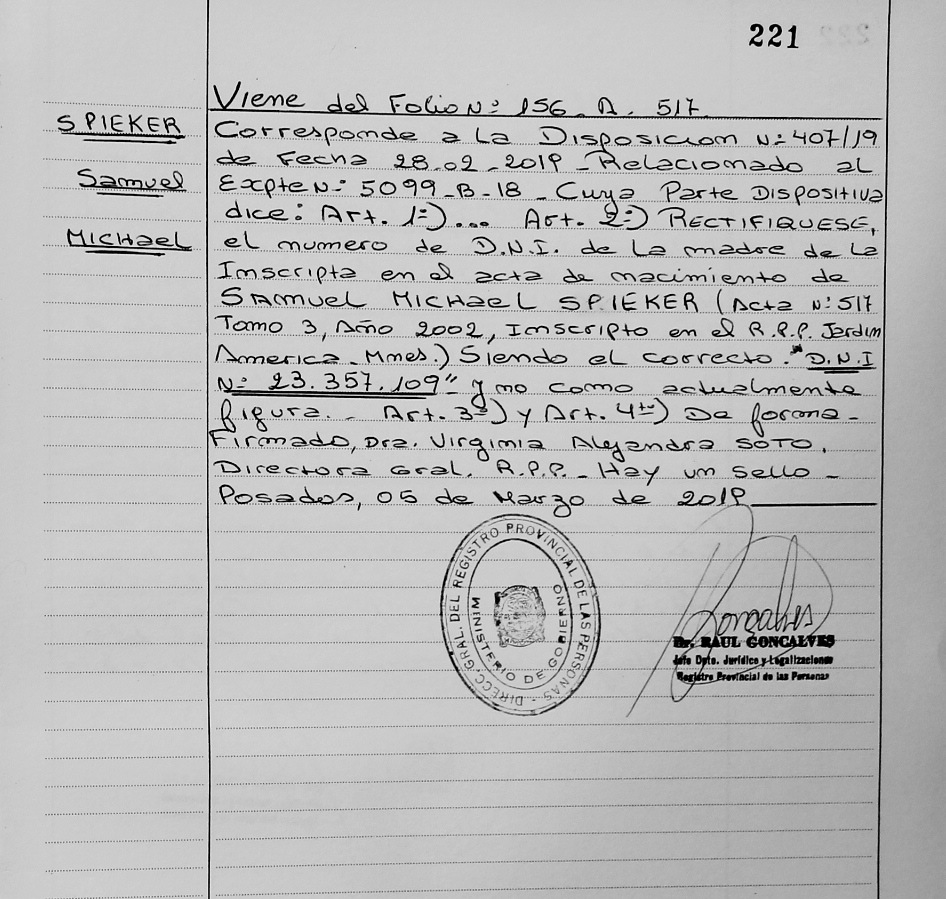 221
SPIEKER
Samuel
MICHAEL
Viene del Folio Nº 156. A. 517
Corresponde a La Disposicion Nº 407/19
de Fecha 28.02.2019 - Relacionado al
Expte Nº 5099-B-18 - Cuya Parte Dispositiva
dice: Art. 1º)... Art. 2º) RECTIFIQUESE,
el numero de D.N.I. de La madre de La
Inscripta en el acta de nacimiento de
SAMUEL MICHAEL SPIEKER (Acta Nº 517
Tomo 3, Año 2002, Inscripto en el R.P.P. Jardin
America - Mnes.) Siendo el correcto. "D.N.I
Nº 23.357.109" y no como actualmente
figura. - Art. 3º) y Art. 4º) De forma -
Firmado, Dra. Virginia Alejandra SOTO.
Directora Gral. R.P.P. - Hay un sello -
Posadas, 05 de Marzo de 2019
DIRECC. GRAL. DEL REGISTRO PROVINCIAL DE LAS PERSONAS -
MINISTERIO DE GOBIERNO
Goncalves
Dr. RAUL GONCALVES
Jefe Dpto. Jurídico y Legalizaciones
Registro Provincial de las Personas